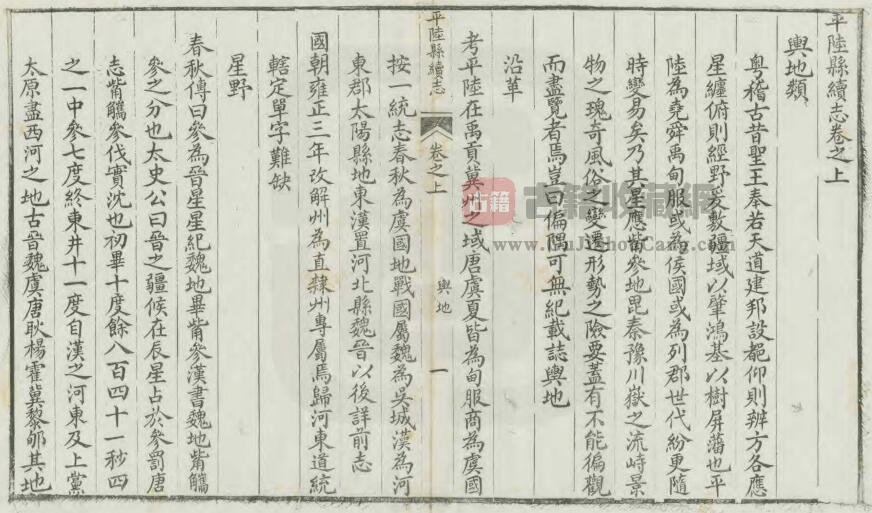 平陸縣續志卷之上
輿地類
粵稽古昔聖王奉若天道建邦設都仰則辨方各應
星纏俯則經野爰敷疆域以肇鴻基以樹屏藩也平
陸為堯舜禹甸服或為侯國或為列郡世代紛更隨
時變易矣乃其星應觜參地毘秦豫川嶽之流峙景
物之瑰奇風俗之變遷形勢之險要蓋有不能徧觀
而盡覽者焉豈曰偏隅可無紀載誌輿地
沿革
考平陸在禹貢冀州之域唐虞夏皆為甸服商為虞國
平陸縣續志
卷之上
輿地
一
按一統志春秋為虞國地戰國屬魏為吳城漢為河
東郡太陽縣地東漢置河北縣魏晉以後詳前志
國朝雍正三年改解州為直隸州專屬焉歸河東道統
轄定單字難缺
星野
春秋傳曰參為晉星星紀魏地畢觜參漢書魏地觜觿
參之分也太史公曰晉之疆候在辰星占於參罰唐
志觜觿參伐實沈也初畢十度餘八百四十一秒四
之一中參七度終東井十一度自漢之河東及上黨
太原盡西河之地古晉魏虞唐耿楊霍冀黎郇其地
古籍
古籍收藏网
www.GuJiShouCang.com